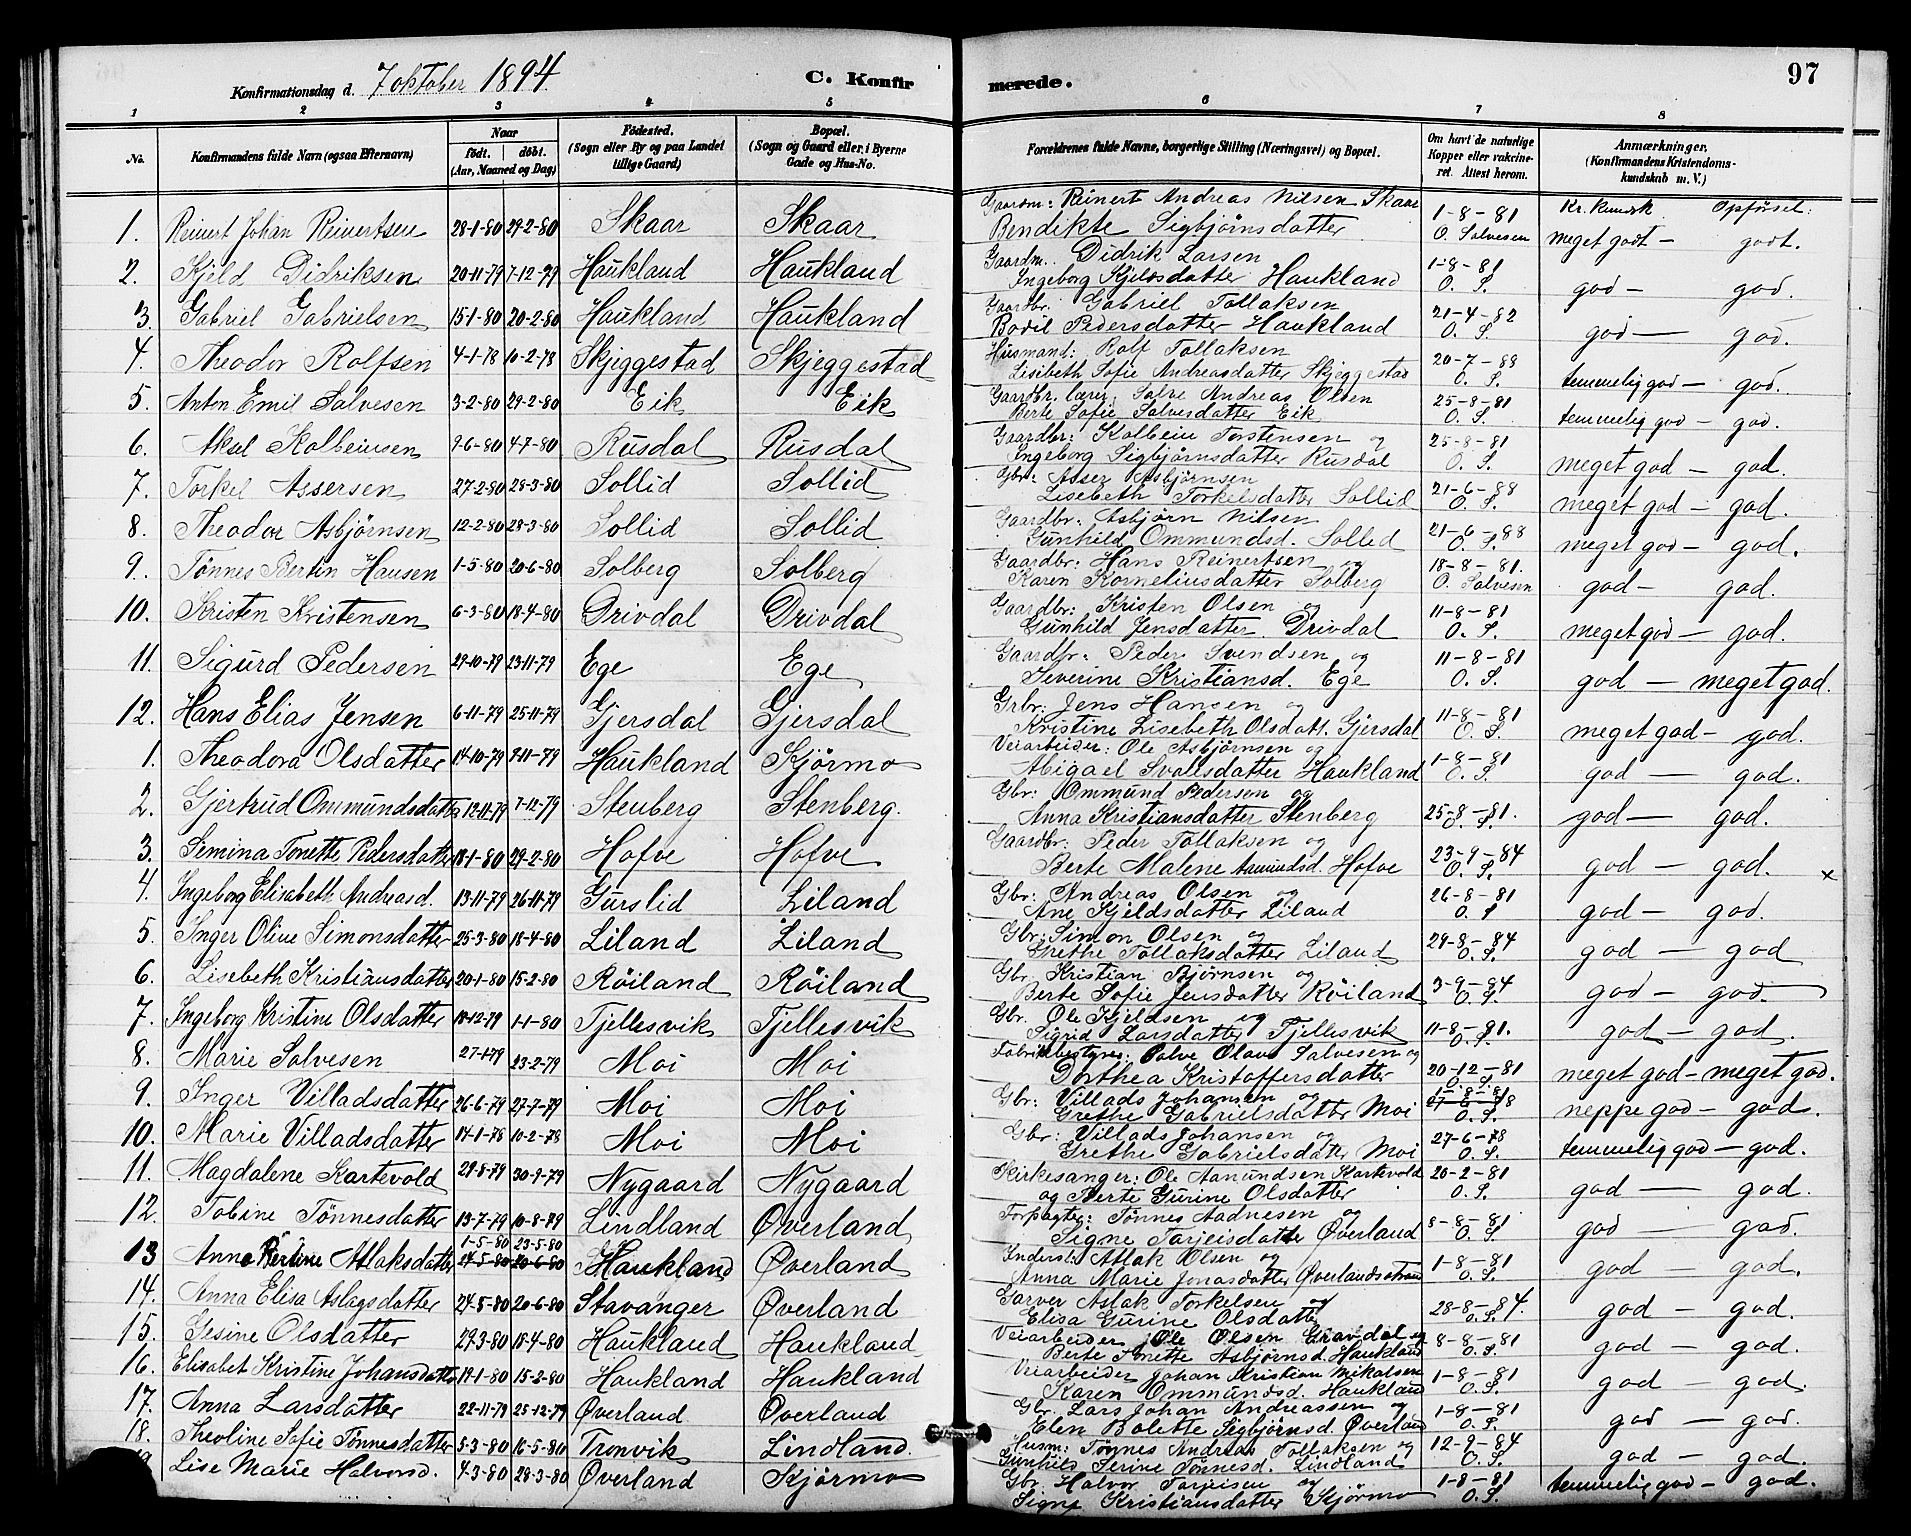 Konfirmationsdag d. 7 oktober 1894. C. Konfirmerede. 97
1 2 3 4 5 6 7 8
No. Konfirmandens fulde Navn (ogsaa Efternavn) Naar født. døbt. (Aar, Maaned og Dag) Fødested. (Sogn eller By og paa Landet tillige Gaard) Bopæl. (Sogn og Gaard eller i Byerne Gade og Hus-No. Forældrenes fulde Navne, borgerlige Stilling (Næringsvei) og Bopæl. Om havt de naturlige Kopper eller vakcineret. Attest herom. Anmærkninger. (Konfirmandens Kristendomskundskab m. V.)
Kr. kundsk. Opførsel:
1. Reinert Johan Reinertsen 28-1-80 29-2-80 Skaar Skaar Gaardm: Reinert Andreas Nilsen Skaar 1-8-81
Bendikte Sigbjørnsdatter O. Salvesen meget godt – godt.
2. Kjeld Didriksen 20-11-79 7-12-79 Haukland Haukland Gaardm. Didrik Larsen 1-8-81
Ingeborg Kjeldsdatter Haukland O. S. god – god.
3. Gabriel Gabrielsen 15-1-80 20-2-80 Haukland Haukland Gaardbr. Gabriel Tollaksen 21-4-82
Bodil Pedersdatter Haukland O. S. god – god.
4. Theodor Rolfsen 4-1-78 10-2-78 Skjeggestad Skjeggestad Husmand: Rolf Tollaksen 20-7-88
Lisebeth Sofie Andreasdatter Skjeggestad O. S. temmelig god – god.
5. Anton Emil Salvesen 3-2-80 29-2-80 Eik Eik Gaardbr. lærer, Salve Andreas Olsen 25-8-81
Berte Sofie Salvesdatter Eik O. S. temmelig god – god.
6. Aksel Kolbeinsen 9-6-80 4-7-80 Rusdal Rusdal Gaardbr: Kolbein Torstensen og 25-8-81
Ingeborg Sigbjørnsdatter Rusdal O. S. meget god – god.
7. Torkel Assersen 27-2-80 28-3-80 Sollid Sollid Gbr: Asser Asbjørnsen 21-6-88
Lisebeth Torkelsdatter Sollid O. S. meget god – god.
8. Theodor Asbjørnsen 12-2-80 28-3-80 Sollid Sollid Gaardbr: Asbjørn Nilsen 21-6-88
Gunhild Ommundsd. Sollid O. S. meget god – god.
9. Tønnes Bertin Hansen 1-5-80 20-6-80 Solberg Solberg Gaardbr: Hans Reinertsen og 18-8-81.
Karen Korneliusdatter Solberg O. Salvesen god – god.
10. Kristen Kristensen 6-3-80 18-4-80 Drivdal Drivdal Gaardbr: Kristen Olsen og 11-8-81
Gunhild Jensdatter. Drivdal O. S. meget god – god.
11. Sigurd Pedersen 29-10-79 23-11-79 Ege Ege Gaardbr: Peder Svendsen og 11-8-81
Severine Kristiansd. Ege O. S. god – meget god.
12. Hans Elias Jensen 6-11-79 25-11-79 Gjersdal Gjersdal Grbr: Jens Hansen og 11-8-81
Kristine Lisebeth Olsdatt. Gjersdal O. S. meget god – god.
1. Theodora Olsdatter 14-10-79 9-11-79 Haukland Kjørmo Veiarbeider: Ole Asbjørnsen og 1-8-81
Abigael Svalisdatter Haukland O. S. god – god.
2. Gjertrud Ommundsdatter 12-11-79 7-12-79 Stenberg Stenberg. Gbr: Ommund Pedersen og 25-8-81.
Anna Kristiansdatter Stenberg O. S. god – god.
3. Semina Tonette Pedersdatter 18-1-80 29-2-80 Hofve Hofve Gaardbr: Peder Tollaksen og 23-9-84
Berte Malene Aamundsd. Hofve O. S. god – god. x
4. Ingeborg Elisabeth Andreasd. 13-11-79 26-11-79 Gurslid Liland Gbr: Andreas Olsen og 26-8-81
Ane Kjeldsdatter Liland O. S god – god.
5. Inger Oline Simonsdatter 25-3-80 18-4-80 Liland Liland Gbr: Simon Olsen og 29-8-84
Grethe Tollaksdatter Liland O. S. god – god
6. Lisebeth Kristiansdatter 20-1-80 15-2-80 Røiland Røiland Gbr. Kristian Bjørnsen og 3-9-84
Berte Sofie Jensdatter Røiland O. S. god – god.
7. Ingeborg Kristine Olsdatter 18-12-79 1-1-80 Tjellesvik Tjellesvik Gbr. Ole Kjeldsen og 11-8-81.
Sigrid Larsdatter Tjellesvik O. S. god – god.
8. Marie Salvesen 27-1-79 23-2-79 Moi Moi Fabrikbestyrer: Salve Olaus Salvesen og 20-12-81
Dorthea Kristoffersdatter O. S. meget god – meget god.
9. Inger Villadsdatter 26-6-79 27-7-79 Moi Moi Gbr: Villads Johansen og 1-8-81
Grethe Gabrielsdatter Moi O. S. neppe god – god.
10. Marie Villadsdatter 14-1-78 10-2-78 Moi Moi Gbr: Villads Johansen og 27-6-78
Grethe Gabrielsdatter Moi O. S. temmelig god – god.
11. Magdalene Kartevold 29-8-79 30-9-79 Nygaard Nygaard Kirkesanger: Ole Aanundsen Kartevold 20-2-81
og Berte Gurine Olsdatter O. S. god – god.
12. Tobine Tønnesdatter 13-7-79 10-8-79 Lindland Øverland Forpagter: Tønnes Aadnesen og 8-8-81
Signe Tarjeisdatter Øverland O. S. god – god.
1-5-80 23-5-80
13 Anne Bertine Atlaksdatter 24-5-80 20-6-80 Haukland Øverland Inderst: Atlak Olsen og 1-8-81
Anna Marie Jonasdatter Øverlandsstrand O. S. god – god.
14. Anna Elisa Aslagsdatter 24-5-80 20-6-80 Stavanger Øverland Garver Aslak Torkelsen og 28-8-84.
Elisa Gurine Olsdatter O. S. god – god.
15. Gesine Olsdatter 29-3-80 18-4-80 Haukland Haukland Veiarbeider Ole Olsen Gravdal og 8-8-81
Berte Tonette Asbjørnsd. Haukland O. S. god – god.
16. Elisabet Kristine Johansdatter 19-1-80 15-2-80 Haukland Haukland Veiarbeider Johan Kristian Mikalsen 1-8-81
Karen Ommundsd. Haukland O. S. god – god.
17. Anna Larsdatter 22-11-79 25-12-79 Øverland Øverland Gbr. Lars Johan Andreassen og 1-8-81
Elen Bolette Sigbjørnsd. Øverland O. S. god – god.
18. Theoline Sofie Tønnesdatter 5-3-80 16-5-80 Tronvik Lindland. Husm: Tønnes Andreas Tollaksen og 12-9-84
Gunhild Serine Tønnesd. Lindland O. S. god – god.
19 Lise Marie Halvorsd. 4-3-80 28-3-80 Øverland Kjørmo Gbr. Halvor Tarjeisen og 1-8-81
Signe Kristiansdatter Kjørmo O. S. temmelig god – god.